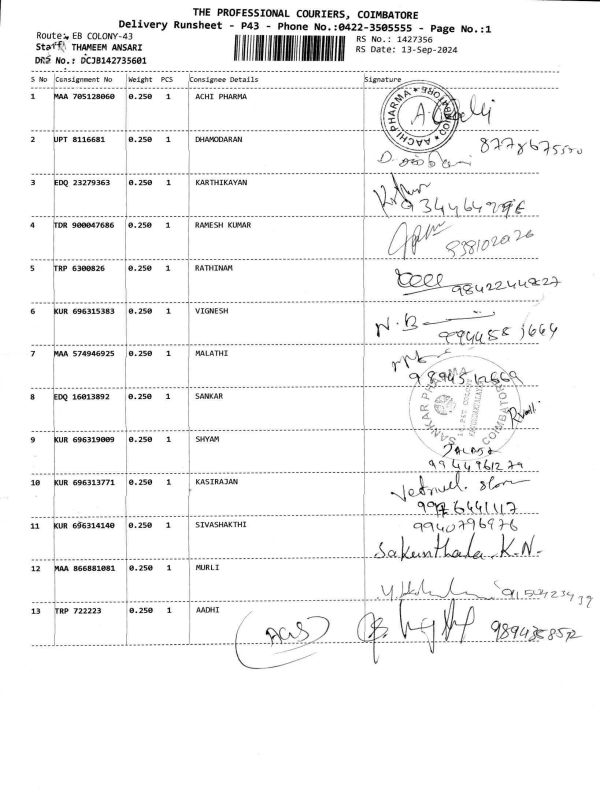 THE PROFESSIONAL COURIERS, COIMBATORE
Delivery Runsheet - P43 - Phone No.:0422-3505555 - Page No.:1
Route: EB COLONY-43 RS No.: 1427356
Staff: THAMEEM ANSARI RS Date: 13-Sep-2024
DRS No.: DCJB142735601
S No Consignment No Weight PCS Consignee Details Signature
1 MAA 705128060 0.250 1 ACHI PHARMA
AACHI PHARMA * COIMBATORE *
2 UPT 8116681 0.250 1 DHAMODARAN
3 EDQ 23279363 0.250 1 KARTHIKAYAN
4 TDR 900047686 0.250 1 RAMESH KUMAR
5 TRP 6300826 0.250 1 RATHINAM 9842244827
6 KUR 696315383 0.250 1 VIGNESH N.B
7 MAA 574946925 0.250 1 MALATHI 9894512669
8 EDQ 16013892 0.250 1 SANKAR
SANKAR PHARMA COIMBATORE
9 KUR 696319009 0.250 1 SHYAM
9944961279
10 KUR 696313771 0.250 1 KASIRAJAN
9976441117
11 KUR 696314140 0.250 1 SIVASHAKTHI 9940796976
Sakunthala.K.N.
12 MAA 866881081 0.250 1 MURLI
13 TRP 722223 0.250 1 AADHI